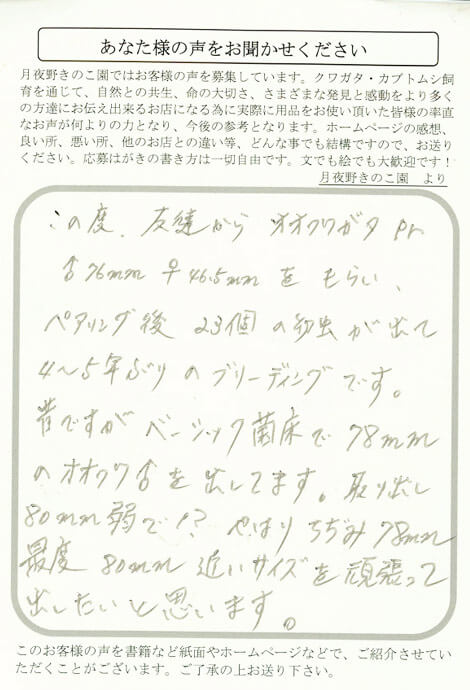 あなた様の声をお聞かせください
月夜野きのこ園ではお客様の声を募集しています。クワガタ・カブトムシ飼
育を通じて、自然との共生、命の大切さ、さまざまな発見と感動をより多く
の方達にお伝え出来るお店になる為に実際に用品をお使い頂いた皆様の率直
なお声が何よりの力となり、今後の参考となります。ホームページの感想、
良い所、悪い所、他のお店との違い等、どんな事でも結構ですので、お送り
ください。応募はがきの書き方は一切自由です。文でも絵でも大歓迎です!
月夜野きのこ園 より
この度、友達から オオクワガタ Pr
♂76mm ♀46.5mm を もらい、
ペアリング後 23個 の幼虫が出て
4〜5年ぶりのブリーディングです。
昔ですが ベーシック菌床で 78mm
のオオクワ♂を 出してます。取り出し
80mm弱で!? やはり ちぢみ 78mm
最度 80mm 近いサイズを 頑張って
出したいと思います。
このお客様の声を書籍など紙面やホームページなどで、ご紹介させてい
ただくことがございます。ご了承の上お送り下さい。